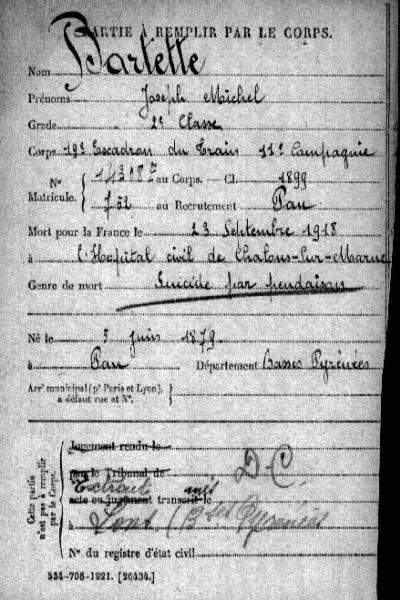 PARTIE À REMPLIR PAR LE CORPS.
Nom Bartette
Prénoms Joseph Michel
Grade 2e Classe
Corps 19e Escadron du Train 11e Compagnie
N° Matricule. { 14308E au Corps. — Cl. 1899
752 au Recrutement Pau
Mort pour la France le 23 Septembre 1918
à l'Hôpital civil de Chalons-Sur-Marne
Genre de mort Suicide par pendaison
Né le 5 Juin 1879
à Pau Département Basses Pyrénées
Arr^t municipal (p^r Paris et Lyon), }
à défaut rue et N°.
Cette partie n'est pas à remplir par le Corps.
Jugement rendu le
par le Tribunal de D.C.
Extrait
acte ou jugement transcrit le
à (Bses Pyrénées)
N° du registre d'état civil
534-708-1921. [26434.]